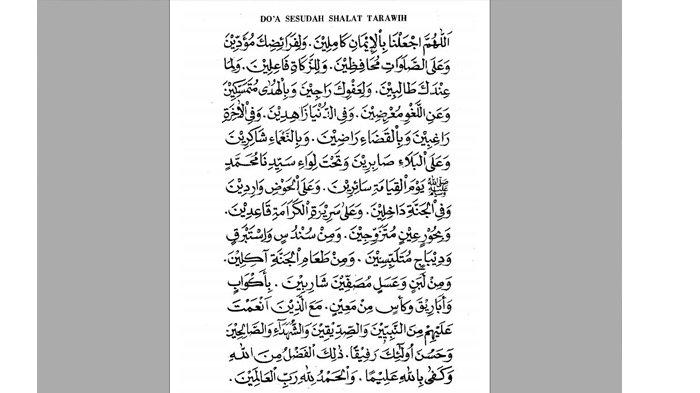 DO'A SESUDAH SHALAT TARAWIH
اَللّٰهُمَّ اجْعَلْنَا بِالْإِيْمَانِ كَامِلِيْنَ. وَلِفَرَائِضِكَ مُؤَدِّيْنَ
وَعَلَى الصَّلَوَاتِ مُحَافِظِيْنَ. وَلِلزَّكَاةِ فَاعِلِيْنَ. وَلِمَا
عِنْدَكَ طَالِبِيْنَ. وَلِعَفْوِكَ رَاجِيْنَ وَبِالْهُدٰى مُتَمَسِّكِيْنَ
وَعَنِ اللَّغْوِ مُعْرِضِيْنَ. وَفِى الدُّنْيَا زَاهِدِيْنَ. وَفِى الْأٰخِرَةِ
رَاغِبِيْنَ وَبِالْقَضَاءِ رَاضِيْنَ. وَبِالنَّعْمَاءِ شَاكِرِيْنَ
وَعَلَى الْبَلَاءِ صَابِرِيْنَ وَتَحْتَ لِوَاءِ سَيِّدِنَا مُحَمَّدٍ
ﷺ يَوْمَ الْقِيَامَةِ سَائِرِيْنَ. وَعَلَى الْحَوْضِ وَارِدِيْنَ
وَفِى الْجَنَّةِ دَاخِلِيْنَ. وَعَلٰى سَرِيْرَةِ الْكَرَامَةِ قَاعِدِيْنَ.
وَبِحُوْرٍ عِيْنٍ مُتَزَوِّجِيْنَ. وَمِنْ سُنْدُسٍ وَاِسْتَبْرَقٍ
وَدِيْبَاجٍ مُتَلَبِّسِيْنَ. وَمِنْ طَعَامِ الْجَنَّةِ آكِلِيْنَ.
وَمِنْ لَبَنٍ وَعَسَلٍ مُصَفِّيْنَ شَارِبِيْنَ. بِأَكْوَابٍ
وَأَبَارِيْقَ وَكَأْسٍ مِنْ مَعِيْنٍ. مَعَ الَّذِيْنَ اَنْعَمْتَ
عَلَيْهِمْ مِنَ النَّبِيِّيْنَ وَالصِّدِّيْقِيْنَ وَالشُّهَدَآءِ وَالصَّالِحِيْنَ
وَحَسُنَ أُولٰئِكَ رَفِيْقًا. ذٰلِكَ الْفَضْلُ مِنَ اللهِ
وَكَفٰى بِاللهِ عَلِيْمًا. وَالْحَمْدُ لِلّٰهِ رَبِّ الْعَالَمِيْنَ.